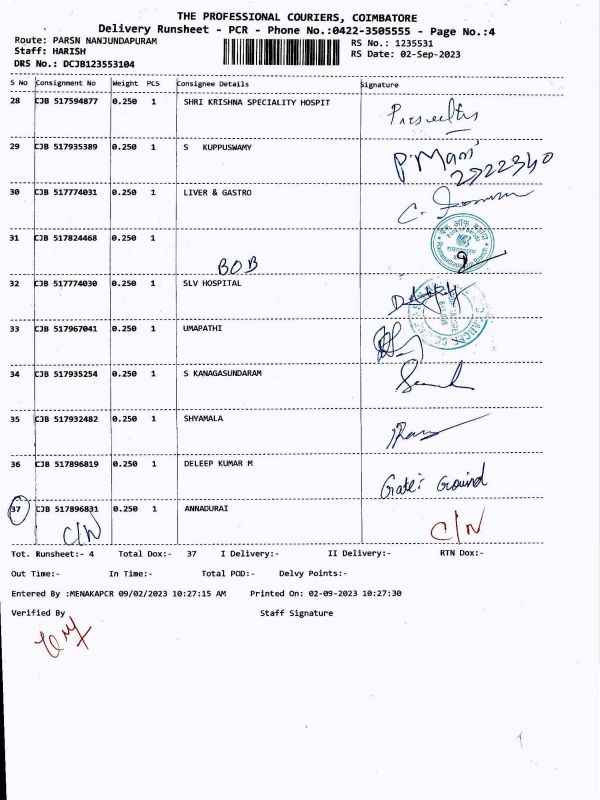 THE PROFESSIONAL COURIERS, COIMBATORE
Delivery Runsheet - PCR - Phone No.:0422-3505555 - Page No.:4
Route: PARSN NANJUNDAPURAM
RS No.: 1235531
Staff: HARISH
RS Date: 02-Sep-2023
DRS No.: DCJB123553104
S No Consignment No Weight PCS Consignee Details Signature
28 CJB 517594877 0.250 1 SHRI KRISHNA SPECIALITY HOSPIT
29 CJB 517935389 0.250 1 S KUPPUSWAMY P.Mani
30 CJB 517774031 0.250 1 LIVER & GASTRO
31 CJB 517824468 0.250 1
BOB
32 CJB 517774030 0.250 1 SLV HOSPITAL
33 CJB 517967041 0.250 1 UMAPATHI
34 CJB 517935254 0.250 1 S KANAGASUNDARAM
35 CJB 517932482 0.250 1 SHYAMALA
36 CJB 517896819 0.250 1 DELEEP KUMAR M
Gate: Ground
37 CJB 517896831 0.250 1 ANNADURAI
C/N C/N
Tot. Runsheet:- 4 Total Dox:- 37 I Delivery:- II Delivery:- RTN Dox:-
Out Time:- In Time:- Total POD:- Delvy Points:-
Entered By :MENAKAPCR 09/02/2023 10:27:15 AM Printed On: 02-09-2023 10:27:30
Verified By Staff Signature